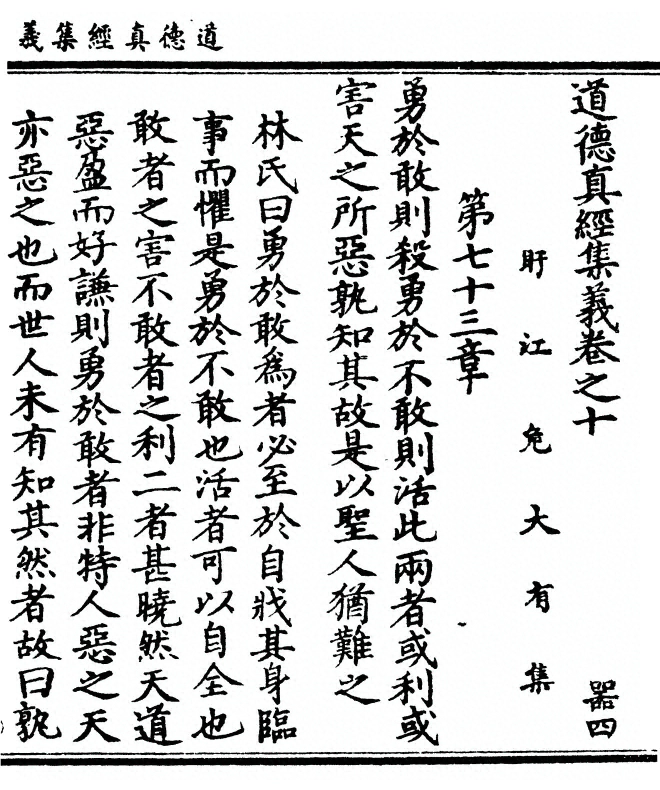 道德真經集義
道德真經集義卷之十 器四
盱江危大有集
第七十三章
勇於敢則殺勇於不敢則活此兩者或利或
害天之所惡孰知其故是以聖人猶難之
林氏曰勇於敢爲者必至於自戕其身臨
事而懼是勇於不敢也活者可以自全也
敢者之害不敢者之利二者甚曉然天道
惡盈而好謙則勇於敢者非特人惡之天
亦惡之也而世人未有知其然者故曰孰